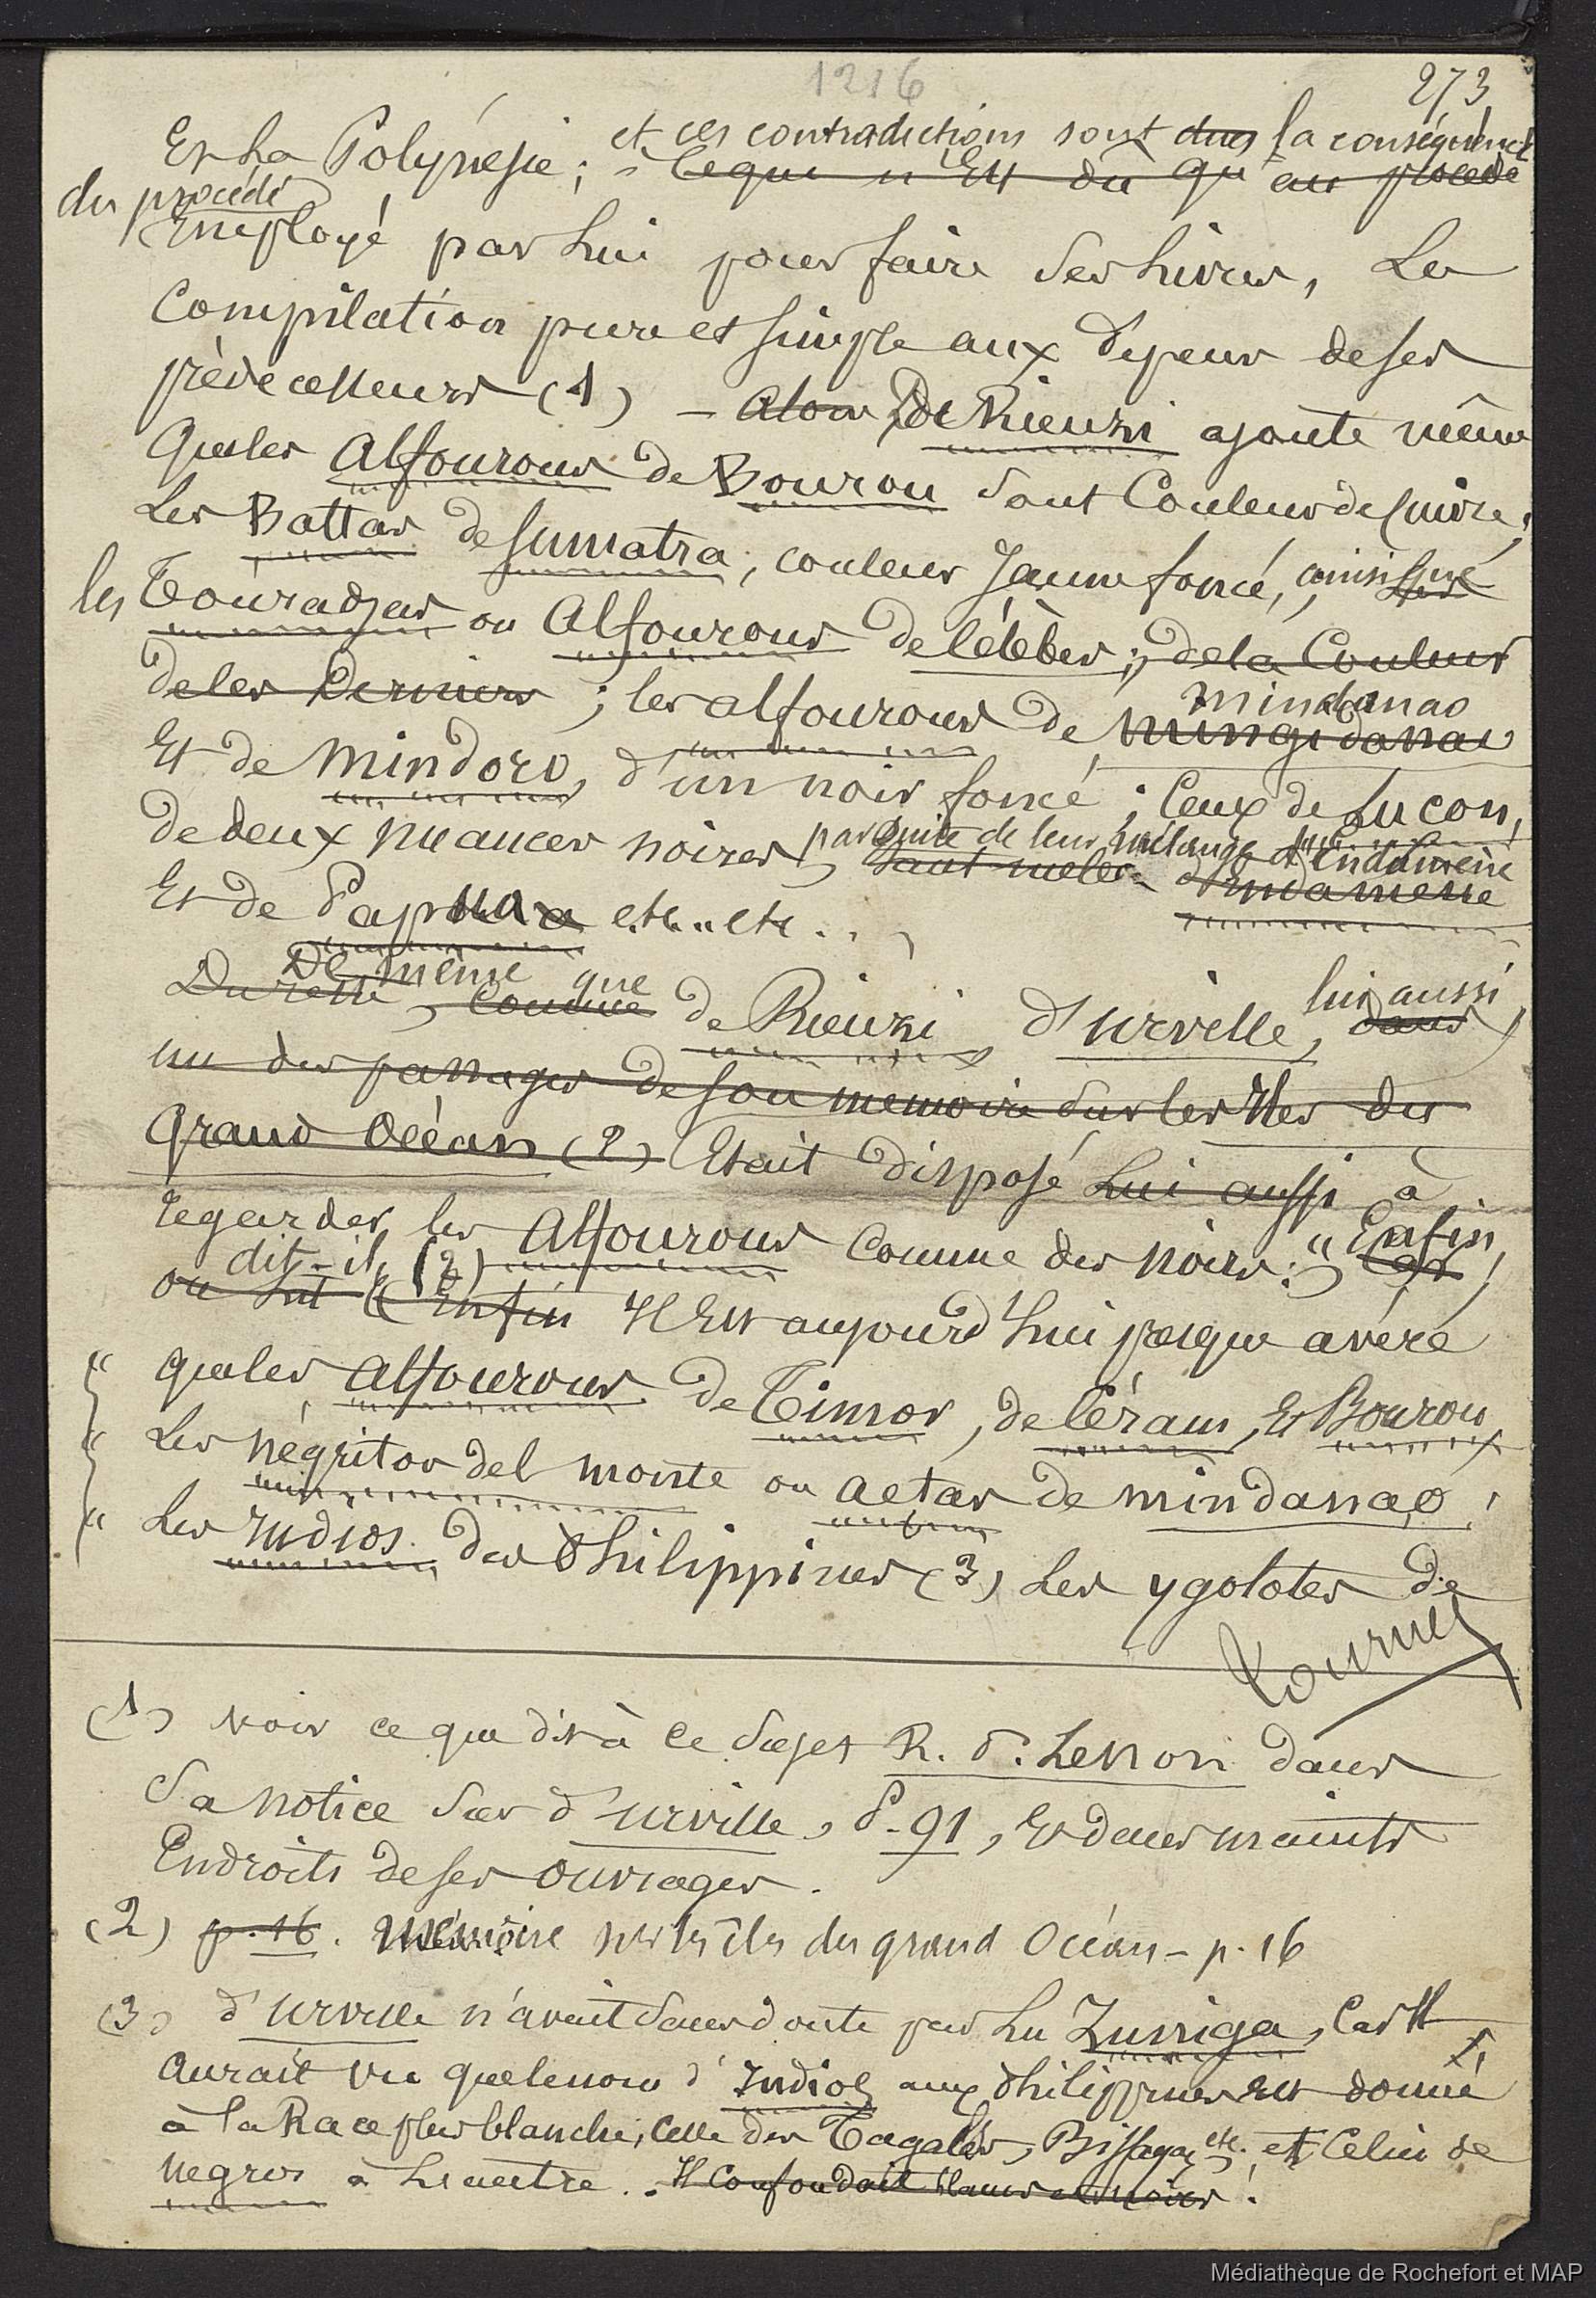 1216
273
et ces contradictions sont dues la conséquence
Et la Polynésie; - Ce qui n'Est dû qu'au procédé
du procédé
Employé par Lui pour faire ses Livres, La
Compilation pure et simple aux dépens de ses
prédécesseurs (1) - Alors De Rienzi ajoute même
que les Alfourous de Bourou sont Couleur de Cuivre;
Les Battas de Sumatra, couleur Jaune foncé, ainsi que
les Touradjas ou Alfourous de Célèbes; de la Couleur
de ces Derniers; les alfourous de mingidanao
mindanao
Et de Mindoro, d'un noir foncé; Ceux de Luçon,
par suite de leur mélange d'Endamène
de deux nuances noires, sont mêlés d'Endamène
Et de Papoua etc.. etc...
De même que lui aussi
Du reste, comme de Rienzi, d'urville, dans
un des passages de son memoire sur les Iles du
grand Océan (2) Etait disposé Lui aussi à
regarder les Alfourous comme des noirs: " Enfin,
dit-il, (2)
ou Lit « Enfin Il Est aujourd'hui presque avéré
" que les Alfourous de Timor, de Céram, Et Bourou
" Les négritos del monte ou aetas de mindanao,
" Les Indios des Philippines (3) Les ygolotes de
Tournez
(1) voir ce que dit à ce sujet R. P. Lesson dans
Sa notice sur d'urville, P. 91, Et dans maints
Endroits de ses ouvrages.
(2) p. 16. Mémoire sur les îles du grand Océan - p. 16
(3) d'urville n'avait sans doute pas Lu Zuniga, Car Il
aurait vu que le nom d'Indios aux Philippines Est donné
à la Race plus blanche, celle des Tagales, Bissayas etc. et Celui de
negros à L'autre. . Il confondait blancs et noirs!
Médiathèque de Rochefort et MAP